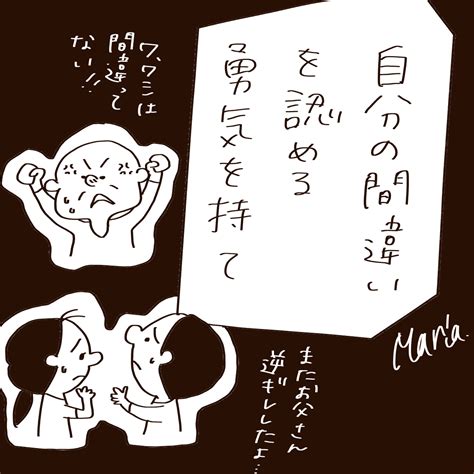 自分の間違い
を認める
勇気を持て
ワ、ワシは
間違って
ない!!
またお父さん
逆ギレしたよ…
Maria.